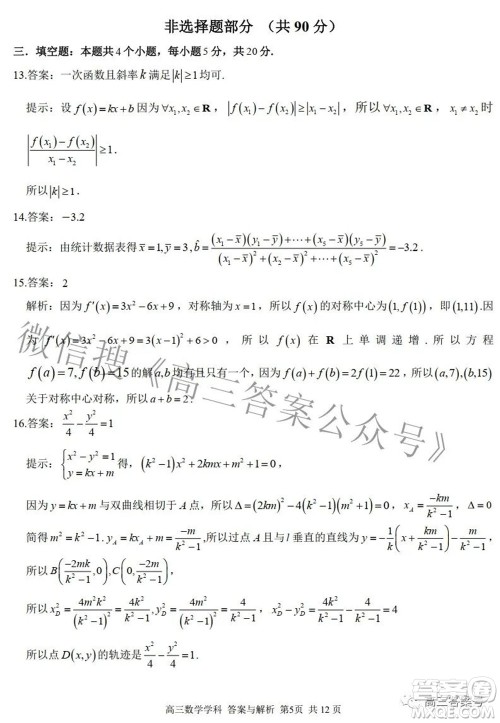 非选择题部分 （共 90 分）
三．填空题：本题共 4 个小题，每小题 5 分，共 20 分．
13.答案：一次函数且斜率 k 满足 |k| ≥ 1 均可．
提示：设 f(x) = kx + b 因为 ∀x₁, x₂ ∈ R ， |f(x₁) − f(x₂)| ≥ |x₁ − x₂| ，所以 ∀x₁, x₂ ∈ R ， x₁ ≠ x₂ 时
|(f(x₁) − f(x₂))/(x₁ − x₂)| ≥ 1 ．
所以 |k| ≥ 1 ．
14.答案： −3.2
提示：由统计数据表得 x̄ = 1, ȳ = 3, b̂ = ((x₁ − x̄)(y₁ − ȳ) + ⋯ + (x₅ − x̄)(y₅ − ȳ))/((x₁ − x̄)² + (x₂ − x̄)² + ⋯ + (x₅ − x̄)²) = −3.2 ．
15.答案： 2
解析：因为 f′(x) = 3x² − 6x + 9 ，对称轴为 x = 1 ，所以 f(x) 的对称中心为 (1, f(1)) ，即 (1,11) .因
为 f′(x) = 3x² − 6x + 9 = 3(x − 1)² + 6 > 0 ，所以 f(x) 在 R 上单调递增．所以方程
f(a) = 7, f(b) = 15 的解 a,b 均有且只有一个，因为 f(a) + f(b) = 2f(1) = 22 ，所以 (a,7), (b,15)
关于对称中心对称，所以 a + b = 2 ．
16.答案： x²/4 − y²/4 = 1
提示： { x² − y² = 1 y = kx + m 得， (k² − 1)x² + 2kmx + m² + 1 = 0 ，
因为 y = kx + m 与双曲线相切于 A 点，所以 Δ = (2km)² − 4(k² − 1)(m² + 1) = 0 ， x_A = −km/(k² − 1)
简得 m² = k² − 1 . y_A = kx_A + m = −m/(k² − 1) ,所以过点 A 且与 l 垂直的直线为 y = −1/k (x + km/(k² − 1)) − m/(k² − 1) ，
所以 B(−2mk/(k² − 1), 0), C(0, −2m/(k² − 1)) ，
所以 x_D² = 4m²k²/(k² − 1)² = 4k²/(k² − 1), y_D² = 4m²/(k² − 1)² = 4/(k² − 1) ， x_D² − y_D² = 4k²/(k² − 1) − 4/(k² − 1) = 4
所以点 D(x, y) 的轨迹是 x²/4 − y²/4 = 1 ．
高三数学学科 答案与解析 第5页 共 12 页
微信搜《高三答案公众号》
高三答案号